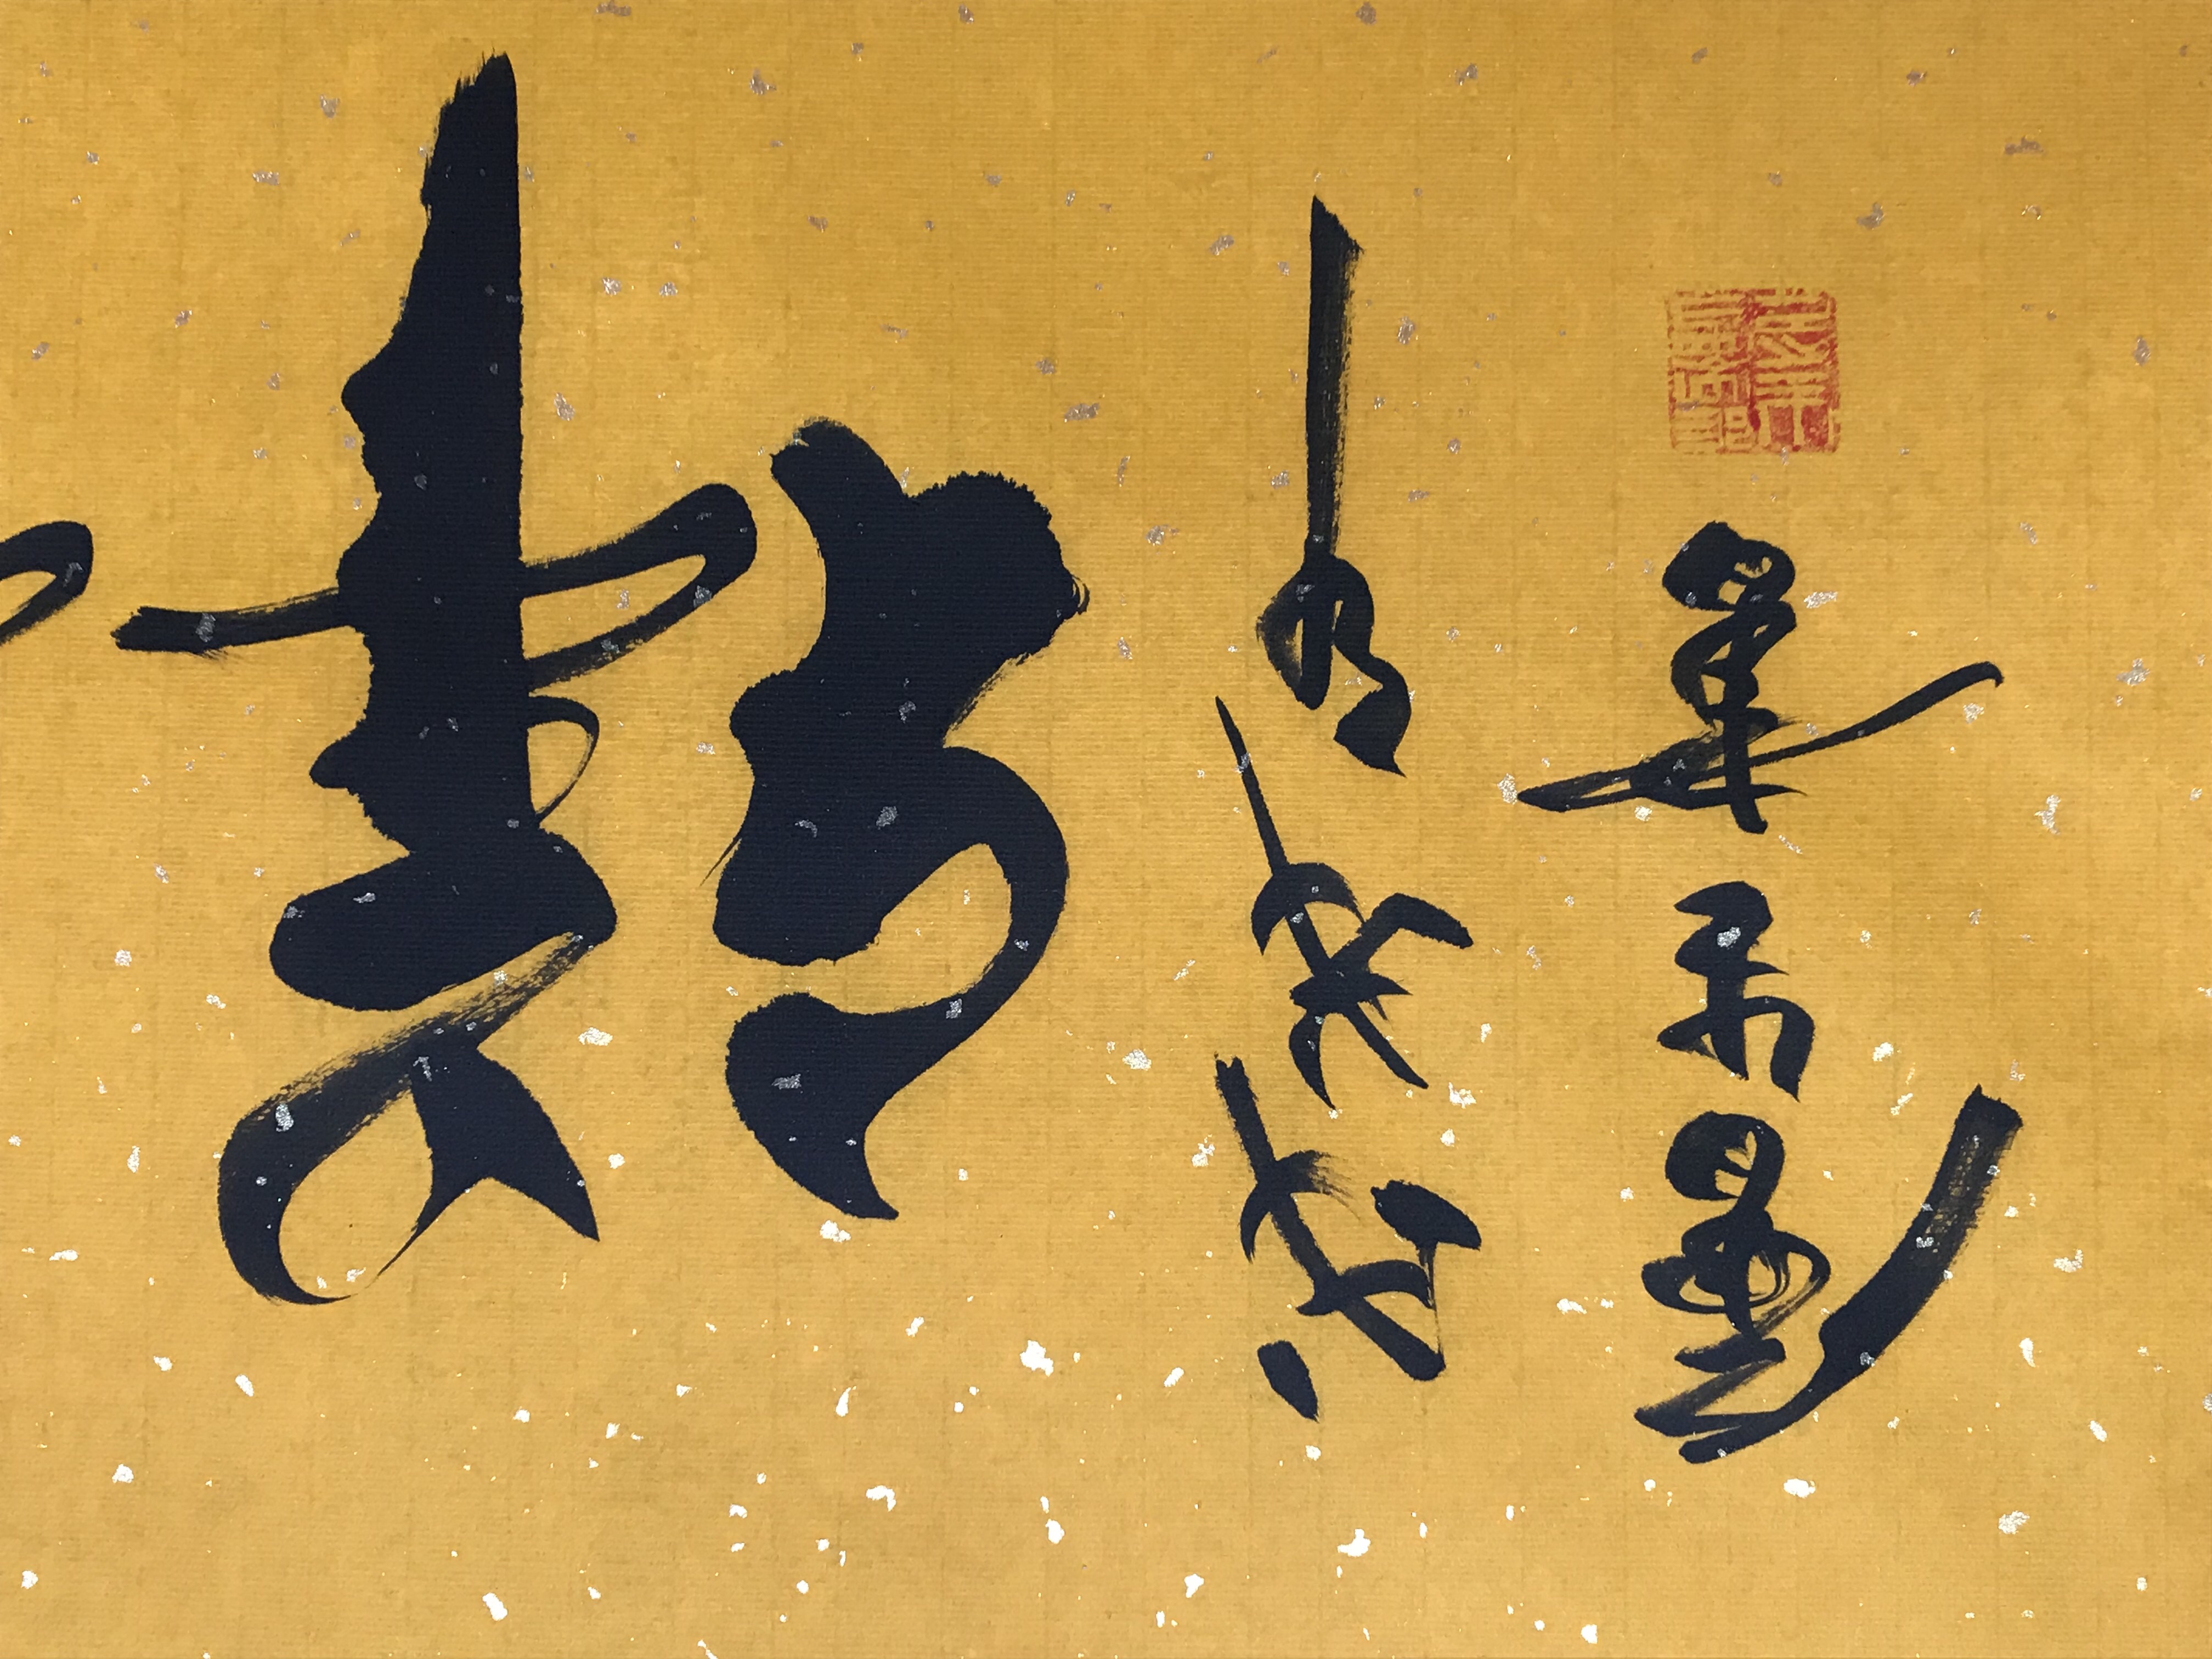 祥
戊戌年
會生書